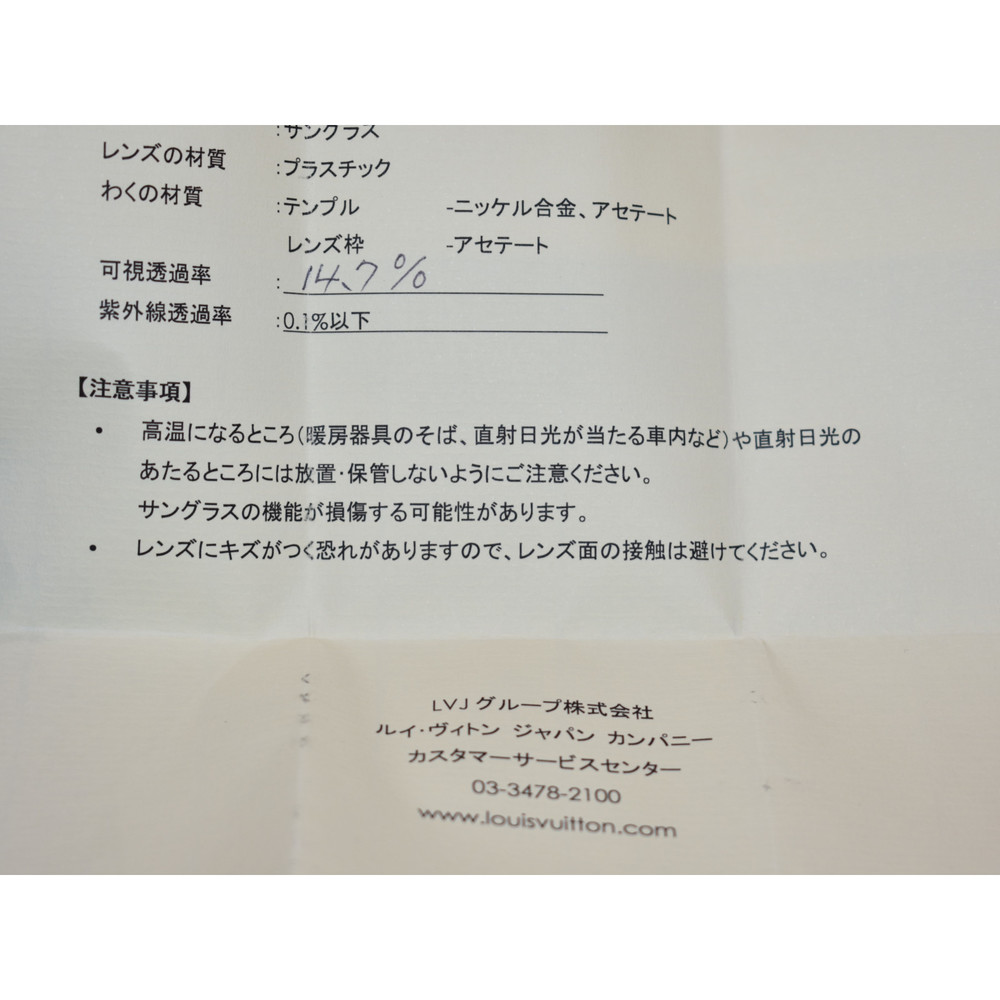 :サングラス
レンズの材質 :プラスチック
わくの材質 :テンプル -ニッケル合金、アセテート
レンズ枠 -アセテート
可視透過率 : 14.7%
紫外線透過率 :0.1%以下
【注意事項】
• 高温になるところ(暖房器具のそば、直射日光が当たる車内など)や直射日光の
あたるところには放置・保管しないようにご注意ください。
サングラスの機能が損傷する可能性があります。
• レンズにキズがつく恐れがありますので、レンズ面の接触は避けてください。
LVJ グループ株式会社
ルイ・ヴィトン ジャパン カンパニー
カスタマーサービスセンター
03-3478-2100
www.louisvuitton.com